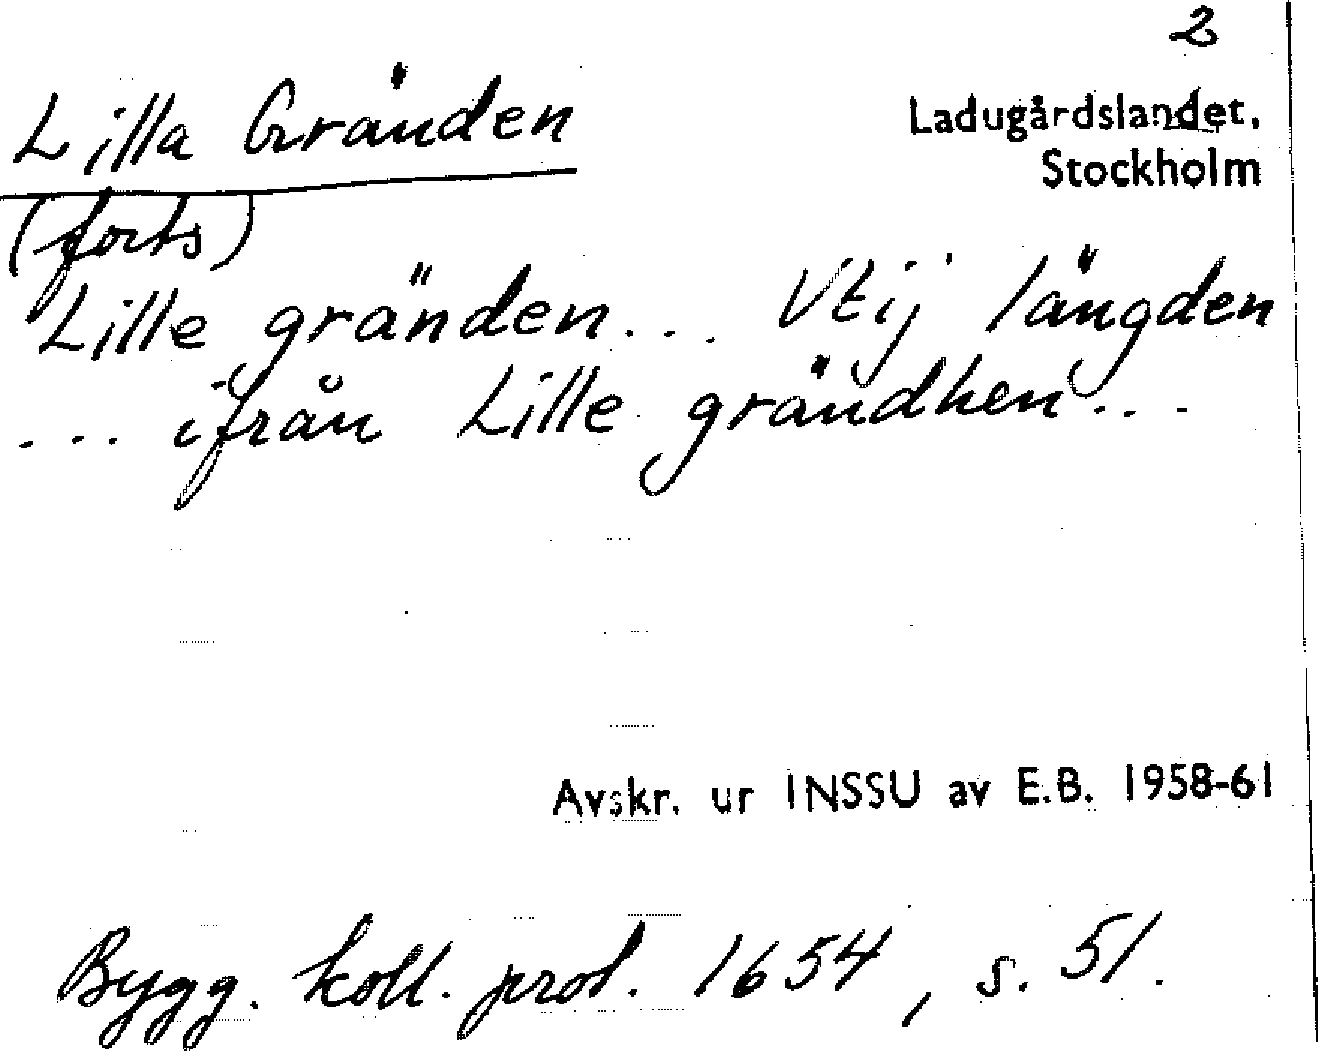 2
Lilla Gränden
Ladugårdslandet,
Stockholm
(forts)
Lille gränden... Vtij längden
... ifrån Lille grändhen...
Avskr. ur INSSU av E.B. 1958-61
Bygg. koll. prot. 1654, s. 51.